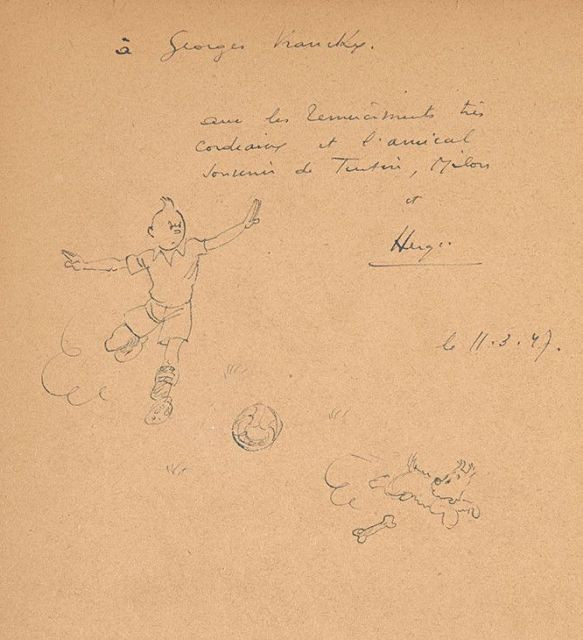 à Georges Vranckx.
avec les remerciements très
cordiaux et l'amical
souvenir de Tintin, Milou
et
Hergé
le 11.3.47.